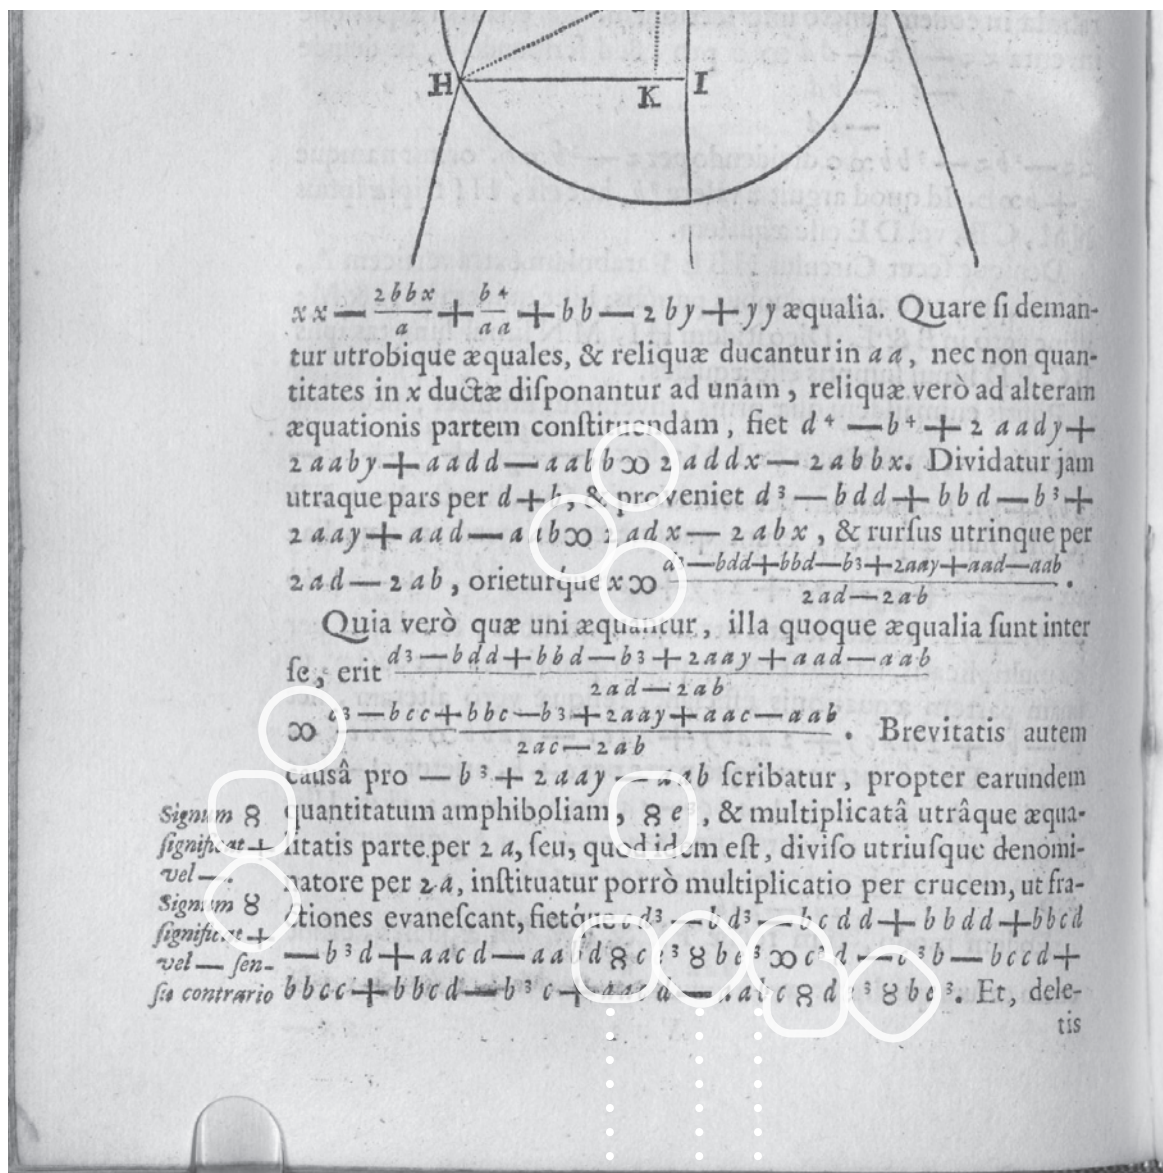 H K I
xx — 2bbx/a + b⁴/aa + bb — 2by + yy æqualia. Quare ſi deman-
tur utrobique æquales, & reliquæ ducantur in aa, nec non quan-
titates in x ductæ diſponantur ad unam, reliquæ verò ad alteram
æquationis partem conſtituendam, fiet d⁴ — b⁴ + 2 aady +
2 aaby + aadd — aabb ꝏ 2 addx — 2 abbx. Dividatur jam
utraque pars per d + b, & proveniet d³ — bdd + bbd — b³ +
2 aay + aad — aab ꝏ 2 adx — 2 abx, & rurſus utrinque per
2 ad — 2 ab, orietuŕque x ꝏ d³—bdd+bbd—b³+2aay+aad—aab / 2ad—2ab .
Quia verò quæ uni æquantur, illa quoque æqualia ſunt inter
ſe, erit d³ — bdd + bbd — b³ + 2aay + aad — aab / 2ad — 2ab
ꝏ c³ — bcc + bbc — b³ + 2aay + aac — aab / 2ac — 2ab . Brevitatis autem
causâ pro — b³ + 2 aay — aab ſcribatur, propter earundem
quantitatum amphiboliam, 8 e³, & multiplicatâ utrâque æqua-
litatis parte per 2 a, ſeu, quod idem eſt, diviſo utriuſque denomi-
natore per 2 a, inſtituatur porrò multiplicatio per crucem, ut fra-
ctiones evaneſcant, fietq́ue cd³ — bd³ — bcdd + bbdd + bbcd
— b³d + aacd — aabd 8 ce³ 8 be³ ꝏ c³d — c³b — bccd +
bbcc + bbcd — b³c + aacd — aabc 8 de³ 8 be³. Et, dele-
tis
Signum 8
ſignificat +
vel —.
Signum 8
ſignificat +
vel — ſen-
ſu contrario